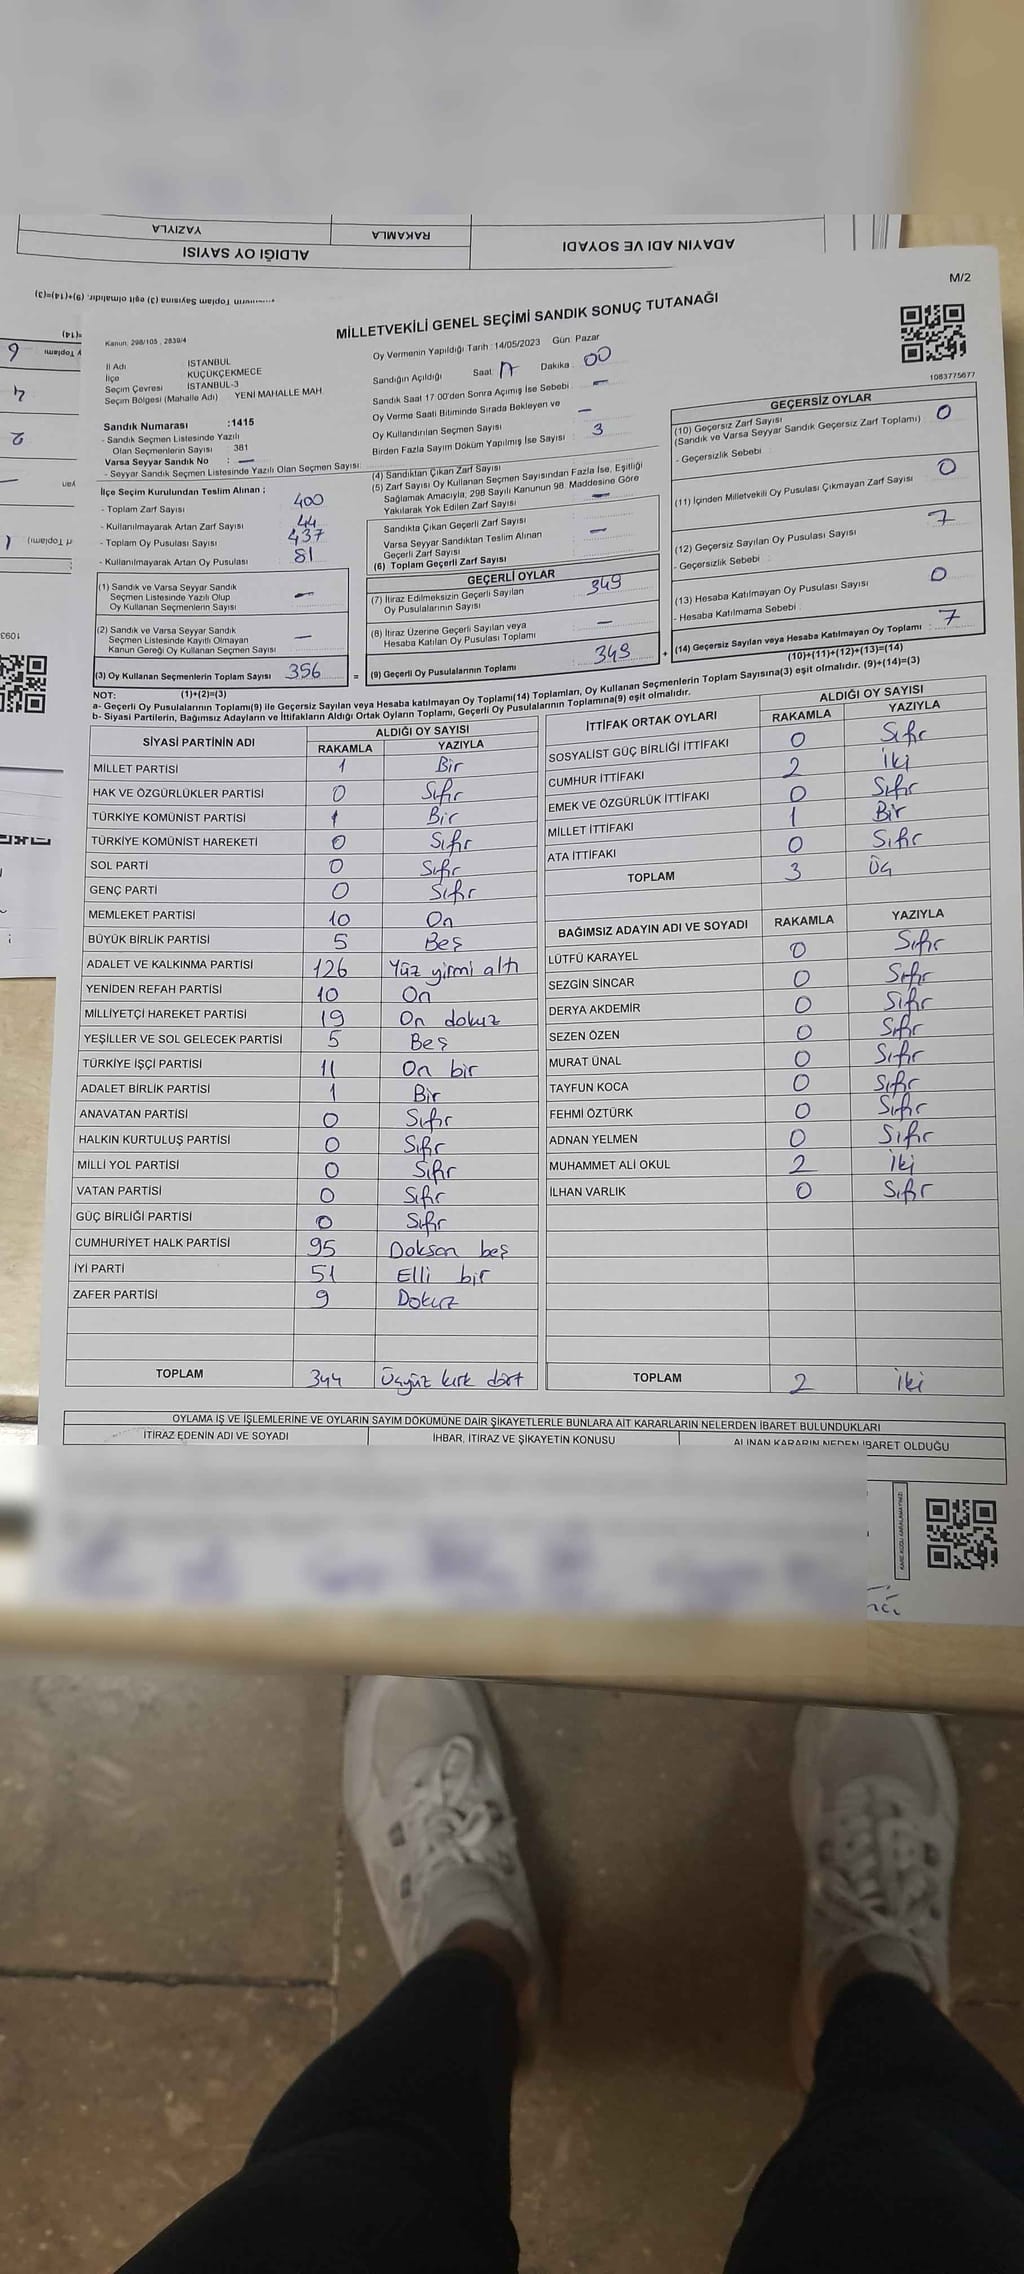 YAZIYLA
RAKAMLA
ALDIĞI OY SAYISI
ADAYIN ADI VE SOYADI
M/2
MİLLETVEKİLİ GENEL SEÇİMİ SANDIK SONUÇ TUTANAĞI
Kanun: 298/105 , 2839/4
1083775677
İl Adı İSTANBUL
İlçe KÜÇÜKÇEKMECE
Seçim Çevresi İSTANBUL-3
Seçim Bölgesi (Mahalle Adı) YENİ MAHALLE MAH.
Sandık Numarası :1415
- Sandık Seçmen Listesinde Yazılı
Olan Seçmenlerin Sayısı : 381
Varsa Seyyar Sandık No : —
- Seyyar Sandık Seçmen Listesinde Yazılı Olan Seçmen Sayısı:
İlçe Seçim Kurulundan Teslim Alınan ;
- Toplam Zarf Sayısı 400
- Kullanılmayarak Artan Zarf Sayısı 44
- Toplam Oy Pusulası Sayısı 437
- Kullanılmayarak Artan Oy Pusulası 81
(1) Sandık ve Varsa Seyyar Sandık
Seçmen Listesinde Yazılı Olup
Oy Kullanan Seçmenlerin Sayısı —
(2) Sandık ve Varsa Seyyar Sandık
Seçmen Listesinde Kayıtlı Olmayan
Kanun Gereği Oy Kullanan Seçmen Sayısı —
(3) Oy Kullanan Seçmenlerin Toplam Sayısı 356
Oy Vermenin Yapıldığı Tarih :14/05/2023 Gün: Pazar
Sandığın Açıldığı Saat: 17 Dakika : 00
Sandık Saat 17:00'den Sonra Açılmış İse Sebebi : —
Oy Verme Saati Bitiminde Sırada Bekleyen ve
Oy Kullandırılan Seçmen Sayısı : —
Birden Fazla Sayım Döküm Yapılmış İse Sayısı : 3
(4) Sandıktan Çıkan Zarf Sayısı
(5) Zarf Sayısı Oy Kullanan Seçmen Sayısından Fazla İse, Eşitliği
Sağlamak Amacıyla, 298 Sayılı Kanunun 98. Maddesine Göre
Yakılarak Yok Edilen Zarf Sayısı : —
Sandıkta Çıkan Geçerli Zarf Sayısı
Varsa Seyyar Sandıktan Teslim Alınan
Geçerli Zarf Sayısı : —
(6) Toplam Geçerli Zarf Sayısı
GEÇERLİ OYLAR
(7) İtiraz Edilmeksizin Geçerli Sayılan
Oy Pusulalarının Sayısı : 349
(8) İtiraz Üzerine Geçerli Sayılan veya
Hesaba Katılan Oy Pusulası Toplamı : —
(9) Geçerli Oy Pusulalarının Toplamı : 349
GEÇERSİZ OYLAR
(10) Geçersiz Zarf Sayısı
(Sandık ve Varsa Seyyar Sandık Geçersiz Zarf Toplamı) : 0
- Geçersizlik Sebebi :
(11) İçinden Milletvekili Oy Pusulası Çıkmayan Zarf Sayısı : 0
(12) Geçersiz Sayılan Oy Pusulası Sayısı : 7
- Geçersizlik Sebebi :
(13) Hesaba Katılmayan Oy Pusulası Sayısı : 0
- Hesaba Katılmama Sebebi :
(14) Geçersiz Sayılan veya Hesaba Katılmayan Oy Toplamı : 7
NOT: (1)+(2)=(3)
(10)+(11)+(12)+(13)=(14)
a- Geçerli Oy Pusulalarının Toplamı(9) ile Geçersiz Sayılan veya Hesaba katılmayan Oy Toplamı(14) Toplamları, Oy Kullanan Seçmenlerin Toplam Sayısına(3) eşit olmalıdır. (9)+(14)=(3)
b- Siyasi Partilerin, Bağımsız Adayların ve İttifakların Aldığı Ortak Oyların Toplamı, Geçerli Oy Pusulalarının Toplamına(9) eşit olmalıdır.
SİYASİ PARTİNİN ADI ALDIĞI OY SAYISI
RAKAMLA YAZIYLA
MİLLET PARTİSİ 1 Bir
HAK VE ÖZGÜRLÜKLER PARTİSİ 0 Sıfır
TÜRKİYE KOMÜNİST PARTİSİ 1 Bir
TÜRKİYE KOMÜNİST HAREKETİ 0 Sıfır
SOL PARTİ 0 Sıfır
GENÇ PARTİ 0 Sıfır
MEMLEKET PARTİSİ 10 On
BÜYÜK BİRLİK PARTİSİ 5 Beş
ADALET VE KALKINMA PARTİSİ 126 Yüz yirmi altı
YENİDEN REFAH PARTİSİ 10 On
MİLLİYETÇİ HAREKET PARTİSİ 19 On dokuz
YEŞİLLER VE SOL GELECEK PARTİSİ 5 Beş
TÜRKİYE İŞÇİ PARTİSİ 11 On bir
ADALET BİRLİK PARTİSİ 1 Bir
ANAVATAN PARTİSİ 0 Sıfır
HALKIN KURTULUŞ PARTİSİ 0 Sıfır
MİLLİ YOL PARTİSİ 0 Sıfır
VATAN PARTİSİ 0 Sıfır
GÜÇ BİRLİĞİ PARTİSİ 0 Sıfır
CUMHURİYET HALK PARTİSİ 95 Doksan beş
İYİ PARTİ 51 Elli bir
ZAFER PARTİSİ 9 Dokuz
TOPLAM 344 Üçyüz kırk dört
İTTİFAK ORTAK OYLARI ALDIĞI OY SAYISI
RAKAMLA YAZIYLA
SOSYALİST GÜÇ BİRLİĞİ İTTİFAKI 0 Sıfır
CUMHUR İTTİFAKI 2 İki
EMEK VE ÖZGÜRLÜK İTTİFAKI 0 Sıfır
MİLLET İTTİFAKI 1 Bir
ATA İTTİFAKI 0 Sıfır
TOPLAM 3 Üç
BAĞIMSIZ ADAYIN ADI VE SOYADI RAKAMLA YAZIYLA
LÜTFÜ KARAYEL 0 Sıfır
SEZGİN SİNCAR 0 Sıfır
DERYA AKDEMİR 0 Sıfır
SEZEN ÖZEN 0 Sıfır
MURAT ÜNAL 0 Sıfır
TAYFUN KOCA 0 Sıfır
FEHMİ ÖZTÜRK 0 Sıfır
ADNAN YELMEN 0 Sıfır
MUHAMMET ALİ OKUL 2 İki
İLHAN VARLIK 0 Sıfır
TOPLAM 2 İki
OYLAMA İŞ VE İŞLEMLERİNE VE OYLARIN SAYIM DÖKÜMÜNE DAİR ŞİKAYETLERLE BUNLARA AİT KARARLARIN NELERDEN İBARET BULUNDUKLARI
İTİRAZ EDENİN ADI VE SOYADI
İHBAR, İTİRAZ VE ŞİKAYETİN KONUSU
ALINAN KARARIN NEDEN İBARET OLDUĞU
KARE KODU KARALAMAYINIZ!